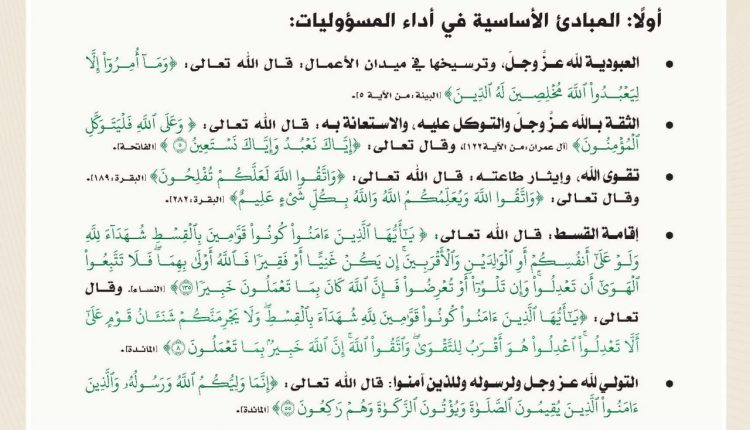 أولًا: المبادئ الأساسية في أداء المسؤوليات:
• العبودية لله عزَّ وجلَّ، وترسيخها في ميدان الأعمال: قال الله تعالى: ﴿وَمَآ أُمِرُوٓاْ إِلَّا
لِيَعۡبُدُواْ ٱللَّهَ مُخۡلِصِينَ لَهُ ٱلدِّينَ﴾ [البينة: من الآية ٥].
• الثقة بالله عزَّ وجلَّ والتوكل عليه، والاستعانة به: قال الله تعالى: ﴿وَعَلَى ٱللَّهِ فَلۡيَتَوَكَّلِ
ٱلۡمُؤۡمِنُونَ﴾ [آل عمران: من الآية ١٢٢]، وقال تعالى: ﴿إِيَّاكَ نَعۡبُدُ وَإِيَّاكَ نَسۡتَعِينُ ٥﴾ [الفاتحة].
• تقوى الله، وإيثار طاعته: قال الله تعالى: ﴿وَٱتَّقُواْ ٱللَّهَ لَعَلَّكُمۡ تُفۡلِحُونَ﴾ [البقرة: ١٨٩].
وقال تعالى: ﴿وَٱتَّقُواْ ٱللَّهَ وَيُعَلِّمُكُمُ ٱللَّهُ وَٱللَّهُ بِكُلِّ شَيۡءٍ عَلِيمٌ﴾ [البقرة: ٢٨٢].
• إقامة القسط: قال الله تعالى: ﴿يَٰٓأَيُّهَا ٱلَّذِينَ ءَامَنُواْ كُونُواْ قَوَّٰمِينَ بِٱلۡقِسۡطِ شُهَدَآءَ لِلَّهِ
وَلَوۡ عَلَىٰٓ أَنفُسِكُمۡ أَوِ ٱلۡوَٰلِدَيۡنِ وَٱلۡأَقۡرَبِينَۚ إِن يَكُنۡ غَنِيًّا أَوۡ فَقِيرًا فَٱللَّهُ أَوۡلَىٰ بِهِمَاۖ فَلَا تَتَّبِعُواْ
ٱلۡهَوَىٰٓ أَن تَعۡدِلُواْۚ وَإِن تَلۡوُۥٓاْ أَوۡ تُعۡرِضُواْ فَإِنَّ ٱللَّهَ كَانَ بِمَا تَعۡمَلُونَ خَبِيرًا ١٣٥﴾ [النساء]. وقال
تعالى: ﴿يَٰٓأَيُّهَا ٱلَّذِينَ ءَامَنُواْ كُونُواْ قَوَّٰمِينَ لِلَّهِ شُهَدَآءَ بِٱلۡقِسۡطِۖ وَلَا يَجۡرِمَنَّكُمۡ شَنَـَٔانُ قَوۡمٍ عَلَىٰٓ
أَلَّا تَعۡدِلُواْۚ ٱعۡدِلُواْ هُوَ أَقۡرَبُ لِلتَّقۡوَىٰۖ وَٱتَّقُواْ ٱللَّهَۚ إِنَّ ٱللَّهَ خَبِيرُۢ بِمَا تَعۡمَلُونَ ٨﴾ [المائدة].
• التولي لله عز وجل ولرسوله وللذين آمنوا: قال الله تعالى: ﴿إِنَّمَا وَلِيُّكُمُ ٱللَّهُ وَرَسُولُهُۥ وَٱلَّذِينَ
ءَامَنُواْ ٱلَّذِينَ يُقِيمُونَ ٱلصَّلَوٰةَ وَيُؤۡتُونَ ٱلزَّكَوٰةَ وَهُمۡ رَٰكِعُونَ ٥٥﴾ [المائدة].